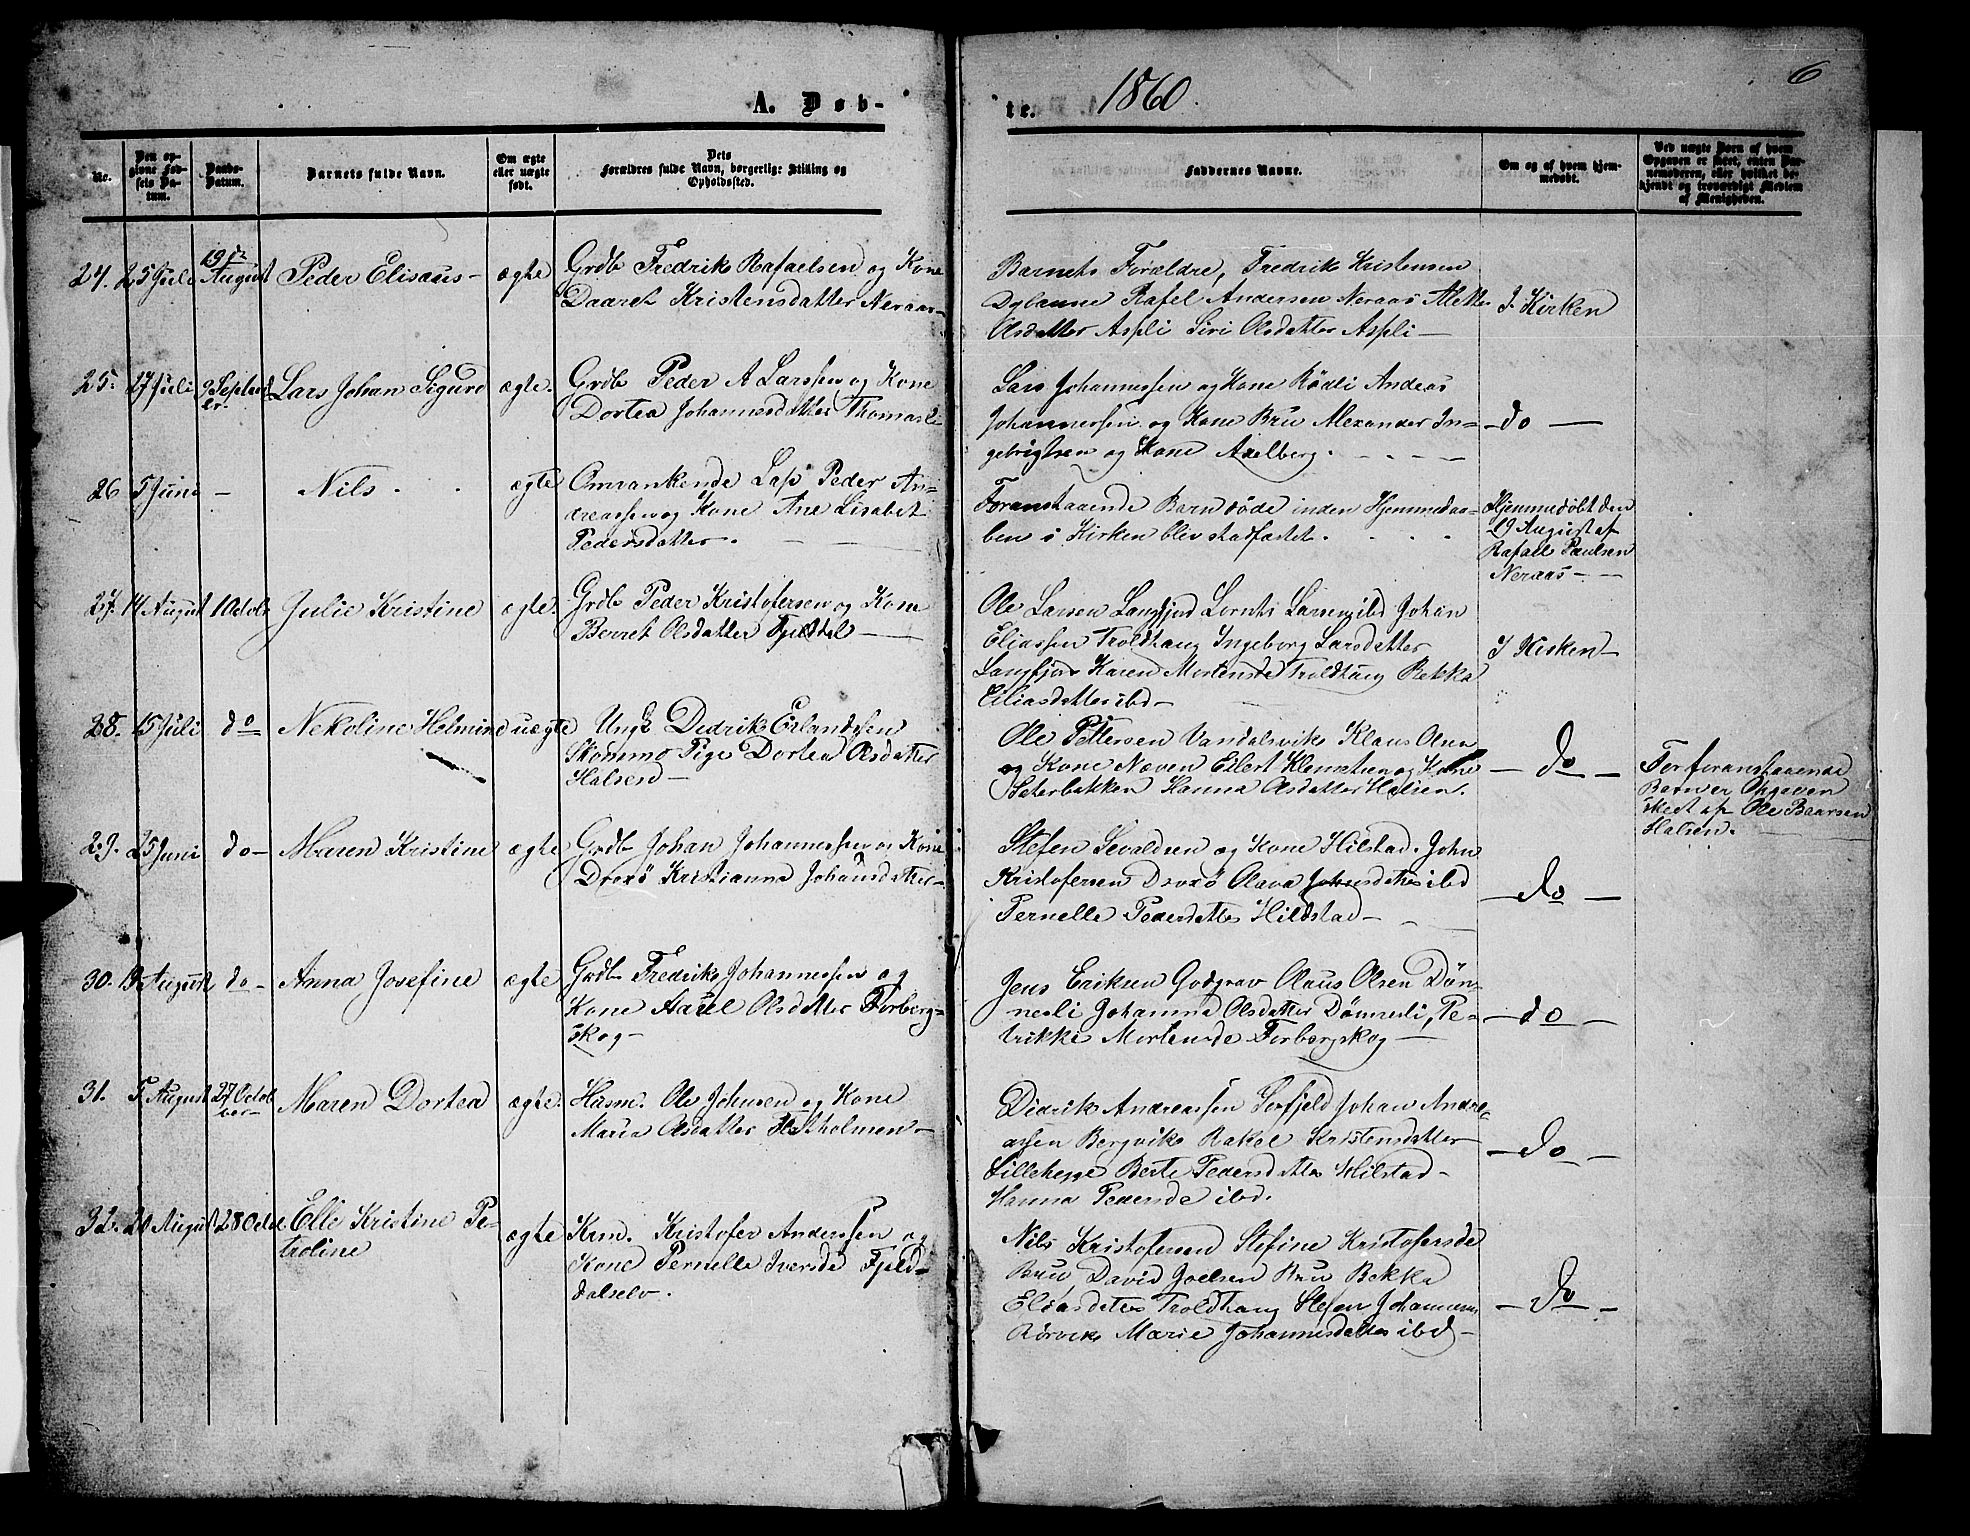 A. Døb-
te. 1860. 6
Nr.
Den opgivne Fødsels Datum.
Daabs-Datum.
Barnets fulde Navn.
Om ægte eller uægte født.
Dets Forældres fulde Navn, borgerlige Stilling og Opholdssted.
Faddernes Navne.
Om og af hvem hjemmedøbt.
Ved uægte Born af hvem Opgaven er skeet, enten Barnemoderen, eller hvilket bekjendt og troværdigt Medlem af Menigheden.
24. 25 Juli 19de August Peder Elisæus- ægte Grdb Fredrik Rafaelsen og Kone
Daaret Kristensdatter Neraas-
Barnets Forældre, Fredrik Kristensen
Rafel Andersen Neraas
Olsdatter Aspli Siri Olsdatter Aspli-
I Kirken
25. 27 Juli 9 Septemb
er. Lars Johan Sigurd ægte. Grdb Peder A Larssen og Kone
Dortea Johannesdatter Thomasli
Lars Johannessen og Kone Rødli Andreas
Johannessen og Kone Bru Alexander In-
gebrigtsen og Kone Axelberg.
- do -
26 5 Juni - Nils. ægte Omvankende Lap Peder An-
dreassen og Kone Ane Lisabet
Pedersdatter.
Foranstaaende Barn døde inden Hjemmedaa-
ben i Kirken blev stadfæstet.
Hjemmedøbt den
19 August af
Rafael Paulsen
Neraas-
27. 14 August 1 Octob Julie Kristine ægte. Grdb Peder Kristofersen og Kone
Berret Olsdatter Fjeldal
Ole Larsen Langfjord Lornts Larsen ibd Johan
Eliassen Troldhaug Ingeborg Larsdatter
Langfjord Karen Mortensd Troldhaug Rekka
Eliasdatter ibd-
I Kirken-
28. 15 Juli do Nekoline Helmine uægte Ungk Dedrik Erlandsen
Skommo Pige Dortea Olsdatter
Halsen-
Ole Pettersen Vandalsvik Klaus Olsen
og Kone Næven Eilert Klemetsen og Kone
Seterbakken Hanna Olsdatter Halsen.
- do -
For foranstaaende
Barn er Opgaven
skeet af Ole Baarsen
Halsen.
29. 25 Juni do- Maren Kristine ægte Grdb Johan Johannessen og Kone
Kristianna Johansdatter-
Stefen Sevaldsen og Kone Hilstad. John
Kristofersen Olava Johnsdatter ibd
Pernelle Pedersdatter Hildstad-
- do -
30. 19 August do- Anna Josefine ægte Grdb Fredrik Johannessen og
Kone Olsdatter Forberg-
skog-
Jens Eriksen Godgrav Olaus Olsen Døn-
nesli Johanna Olsdatter Dønnesli, Pe-
trikke Mortensd Forbergskog-
- do -
31. 5 August 27 Octob
ber- Maren Dortea ægte. Husm. Ole Johnsen og Kone
Maria Olsdatter Holtholmen-
Didrik Andreassen Sorfjeld Johan Andre-
assen Bergvik Rakel Kristensdatter
Lillehegge Berte Pedersdatter Hilstad-
Hanna Pedersd ibd.
- do -
32. 21 August 28 Octob Elle Kristine Pe-
troline ægte Krm. Kristofer Anderssen og
Kone Pernelle Iversd Fjeld-
dalselv.
Nils Kristofersen Stefine Kristofersd
Bru, David Joelsen Bru Bekka
Eliasdatter Troldhaug Stefen Johannesn
Rørvik Marie Johannesdatter ibd-
- do -